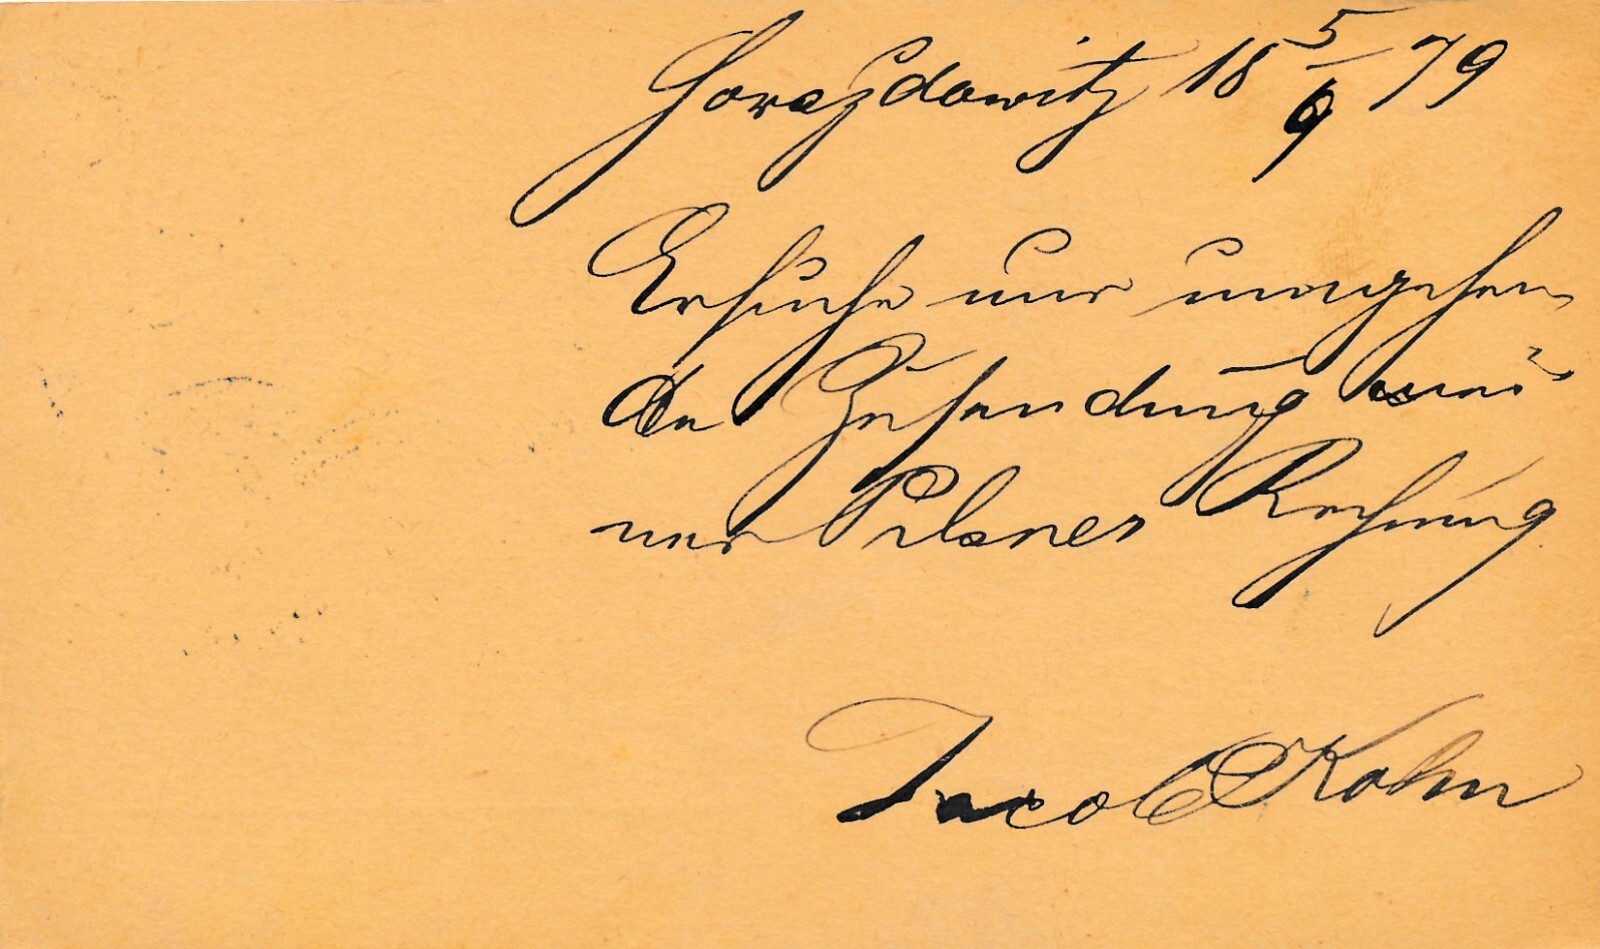 Horazdowitz 18 5/9 79
Ersuche nur umgehen
de Zusendung mei
ner Pilsner Rechnung
Jacob Kohn